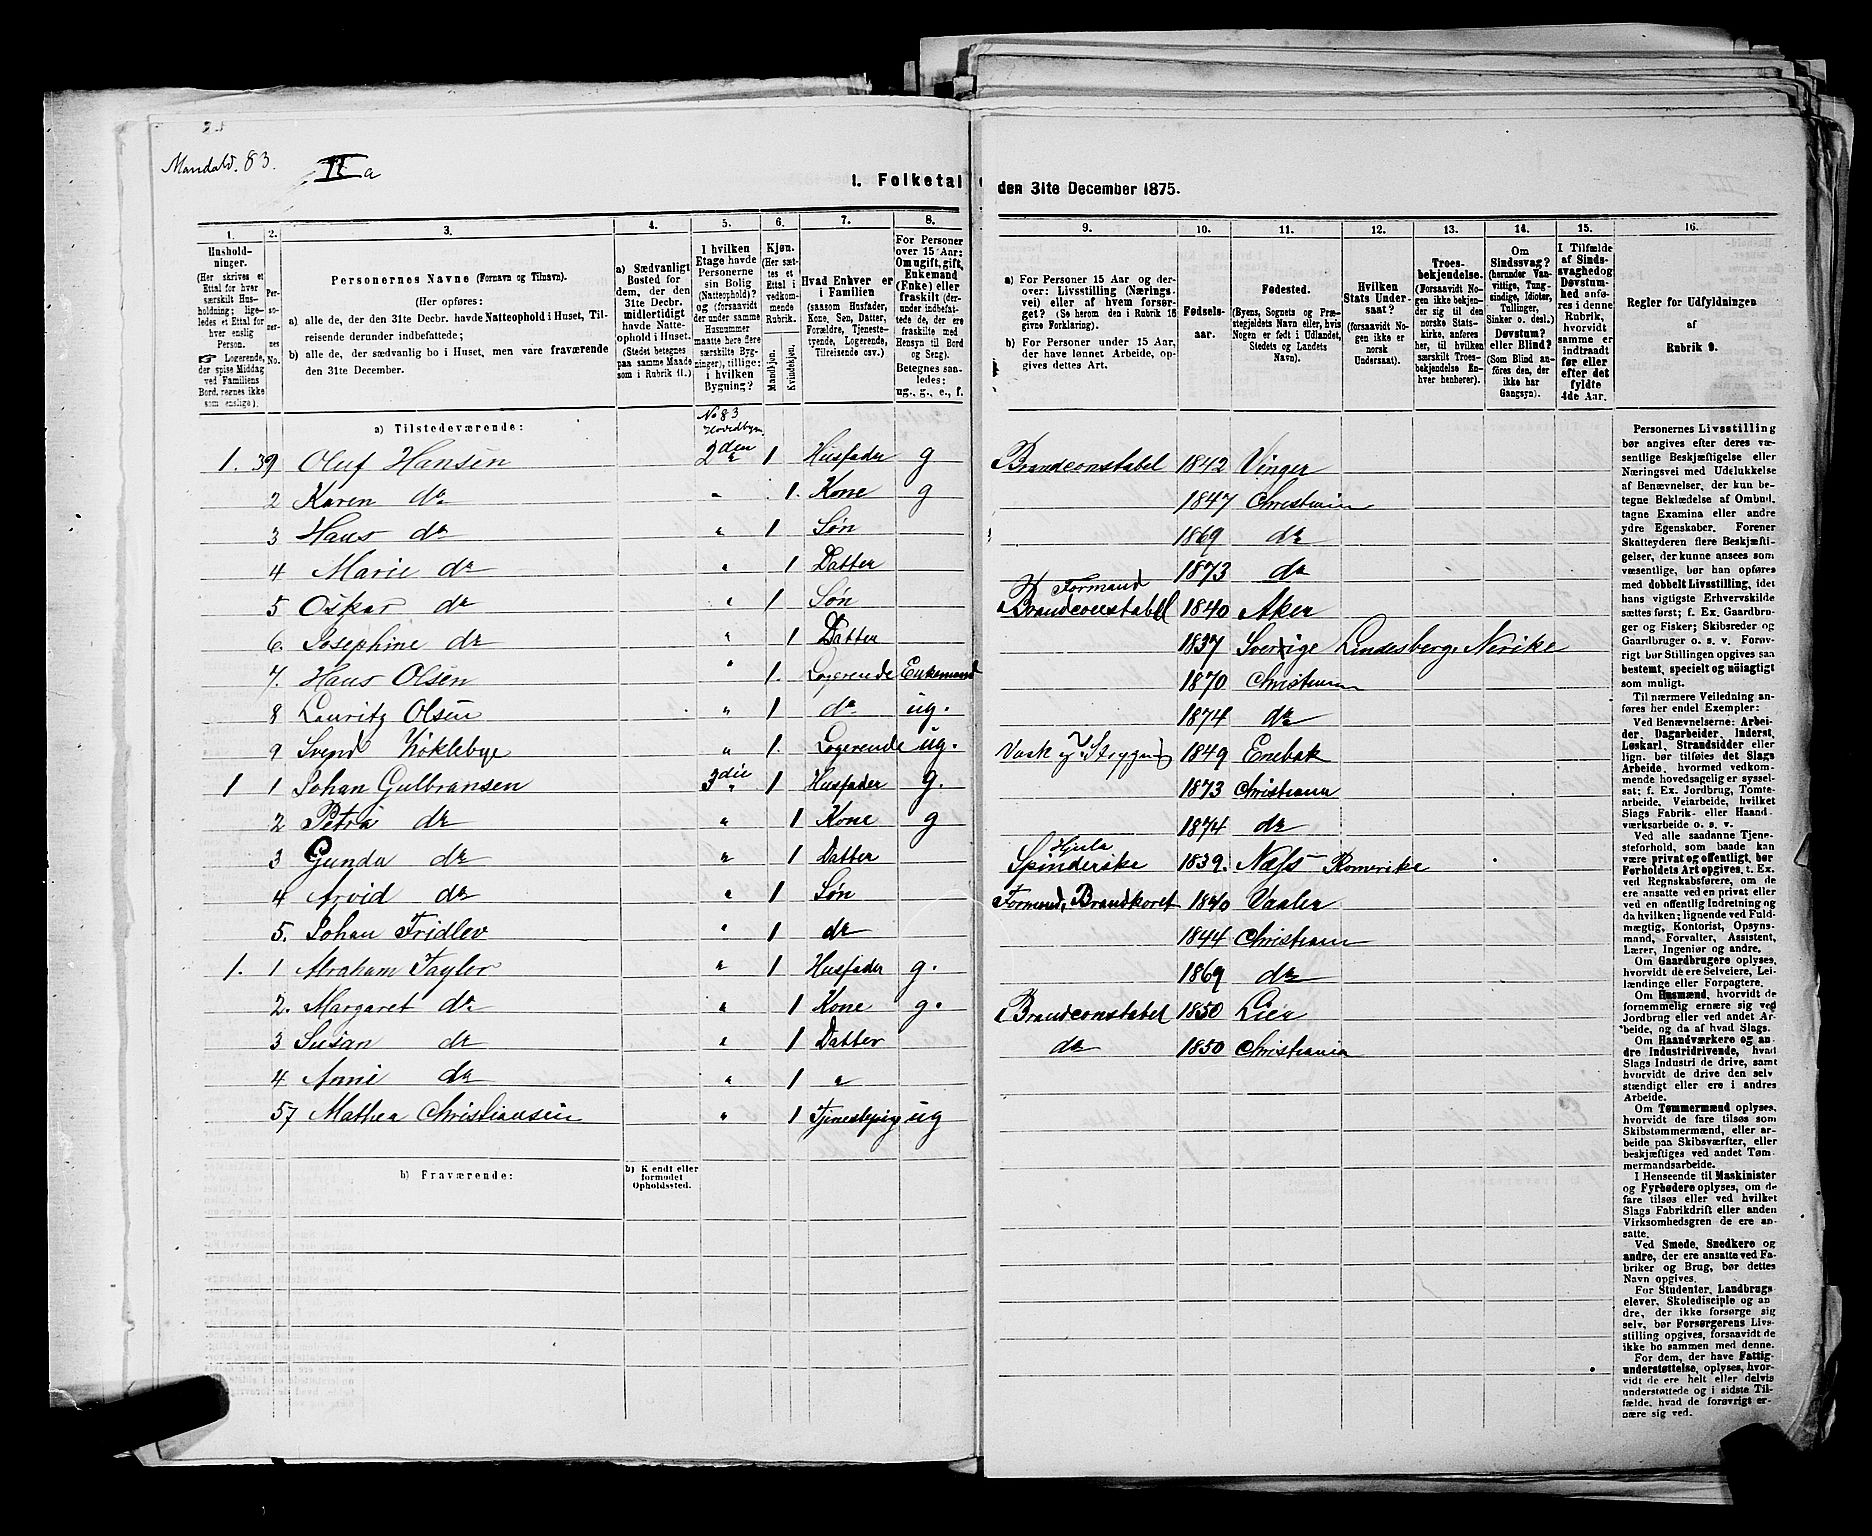 Mandald. 83.
II a
1. Folketal
den 31te December 1875.
1. 2. 3. 4. 5. 6. 7. 8.
Husholdninger.
(Her skrives et Ettal for hver særskilt Husholdning; ligeledes et Ettal for hver enslig Person.
☞ Logerende, der spise Middag ved Familiens Bord, regnes ikke som enslige).
Personernes No.
Personernes Navne (Fornavn og Tilnavn).
(Her opføres:
a) alle de, der den 31te Decbr. havde Natteophold i Huset, Tilreisende derunder indbefattede;
b) alle de, der sædvanlig bo i Huset, men vare fraværende den 31te December.
a) Sædvanligt Bosted for dem, der den 31te Decbr. midlertidigt havde Natteophold i Huset.
(Stedet betegnes paa samme Maade som i Rubrik 11.)
I hvilken Etage havde Personerne sin Bolig (Natteophold)?
Kjøn.
(Her sættes et Ettal i vedkommende Rubrik.
Mandkjøn.
Kvindekjøn.
Hvad Enhver er i Familien
(saasom Husfader, Kone, Søn, Datter, Forældre, Tjenestetyende, Logerende, Tilreisende osv.)
For Personer over 15 Aar: Om ugift, gift, Enkemand (Enke) eller fraskilt (derunder indbefattede de, der ere fraskilte med Hensyn til Bord og Seng).
Betegnes saaledes:
ug., g., e., f.
a) Tilstedeværende:
No 83
Hovedbygn.
1. 39 Oluf Hansen 2den 1 Husfader g
2 Karen do " 1. Kone g
3 Hans do " 1 Søn
4 Marie do " 1 Datter
5 Oskar do " 1 Søn
6. Josephine do " 1 Datter
7. Hans Olsen " 1. Logerende Enkemand
8 Lauritz Olsen " 1 do ug.
9 Svend Köklebye " 1. Logerende ug.
1 1 Johan Gulbransen 3die 1 Husfader g.
2 Petra do " 1 Kone g
3 Gunda do " 1 Datter
4 Arvid do " 1 Søn
5. Johan Fridlev " 1 do
1. 1 Abraham Tayler " 1 Husfader g.
2. Margaret do " 1 Kone g.
3 Susan do " 1 Datter
4 Anne do " 1 "
57 Mathea Christiansen " 1 Tjenestepige ug
b) Fraværende:
b) Kjendt eller formodet Opholdssted.
9. 10. 11. 12. 13. 14. 15. 16.
a) For Personer 15 Aar og derover: Livsstilling (Næringsvei) eller af hvem forsørget? (Se herom den i Rubrik 16 givne Forklaring).
b) For Personer under 15 Aar, der have lønnet Arbeide, opgives dettes Art.
Fødselsaar.
Fødested.
(Byens, Sognets og Præstegjeldets Navn eller, hvis Nogen er født i Udlandet, Stedets og Landets Navn).
Hvilken Stats Undersaat?
(forsaavidt Nogen ikke er norsk Undersaat).
Troesbekjendelse.
(Forsaavidt Nogen ikke bekjender sig til den norske Statskirke, anføres her, til hvilken særskilt Troesbekjendelse Enhver henhører).
Om Sindssvag?
(herunder Vanvittige, Tungsindige, Idioter, Tullinger, Sinker o. desl.)
Døvstum? eller Blind?
(Som Blind anføres den, der ikke har Gangsyn).
I Tilfælde af Sindssvaghed og Døvstumhed anføres i denne Rubrik, hvorvidt samme er indtraadt før eller efter det fyldte 4de Aar.
Regler for Udfyldningen
af
Rubrik 9.
Brandconstabel 1842 Vinger
1847 Christiania
1869 do
1873 do
Formand
Brandconstabel 1840 Aker
1837 Sverige Lindesberg, Nerike
1870 Christiania
1874 do
Vask og Strygning 1849 Enebak
1873 Christiania
1874 do
Hjula
Spinderske 1839. Næss Romerike
Formand, Brandkoret 1840 Vaaler
1844 Christiania
1869 do
Brandconstabel 1850 Lier
do 1850 Christiania
Personernes Livsstilling bør angives efter deres væsentlige Beskjæftigelse eller Næringsvei med Udelukkelse af Benævnelser, der kun betegne Beklædelse af Ombud, tagne Examina eller andre ydre Egenskaber. Forener Skatteyderen flere Beskjæftigelser, der kunne ansees som væsentlige, bør han opføres med dobbelt Livsstilling, idet hans vigtigste Erhvervskilde sættes først; f. Ex. Gaardbruger og Fisker; Skibsreder og Gaardbruger o. s. v. Forøvrigt bør Stillingen opgives saa bestemt, specielt og nøiagtigt som muligt.
Til nærmere Veiledning anføres her endel Exempler:
Ved Benævnelserne: Arbeider, Dagarbeider, Inderst, Løskarl, Strandsidder eller lign. bør tilføies det Slags Arbeide, hvormed vedkommende hovedsagelig er sysselsat; f. Ex. Jordbrug, Tomtearbeide, Veiarbeide, hvilket Slags Fabrik- eller Haandværksarbeide o. s. v.
Ved alle saadanne Tjenesteforhold, som baade kan være privat og offentligt, bør Forholdets Art opgives, t. Ex. ved Regnskabsførere, om de ere ansatte ved en privat eller ved en offentlig Indretning og da hvilken; lignende ved Fuldmægtig, Kontorist, Opsynsmand, Forvalter, Assistent, Lærer, Ingeniør og andre.
Om Gaardbrugere oplyses, hvorvidt de ere Selveiere, Leilændinge eller Forpagtere.
Om Husmænd, hvorvidt de fornemmelig ernære sig ved Jordbrug eller ved andet Arbeide, og da af hvad Slags.
Om Haandværkere og andre Industridrivende, hvad Slags Industri de drive, samt hvorvidt de drive den selvstændigt eller ere i andres Arbeide.
Om Tømmermænd oplyses, hvorvidt de fare tilsøs som Skibstømmermænd, eller arbeide paa Skibsværfter, eller beskjæftiges ved andet Tømmermandsarbeide.
I Henseende til Maskinister og Fyrbødere oplyses, om de fare tilsøs eller ved hvilket Slags Fabrikdrift eller anden Virksomhedsgren de ere ansatte.
Ved Smede, Snedkere og andre, der ere ansatte ved Fabriker og Brug, bør dettes Navn opgives.
For Studenter, Landbrugselever, Skoledisciple og andre, der ikke forsørge sig selv, bør Forsørgerens Livsstilling opgives, forsaavidt de ikke bo sammen med denne.
For dem, der have Fattigunderstøttelse, oplyses, hvorvidt de ere helt eller delvis understøttede og i sidste Tilfælde, hvad de forøvrigt ernære sig ved.